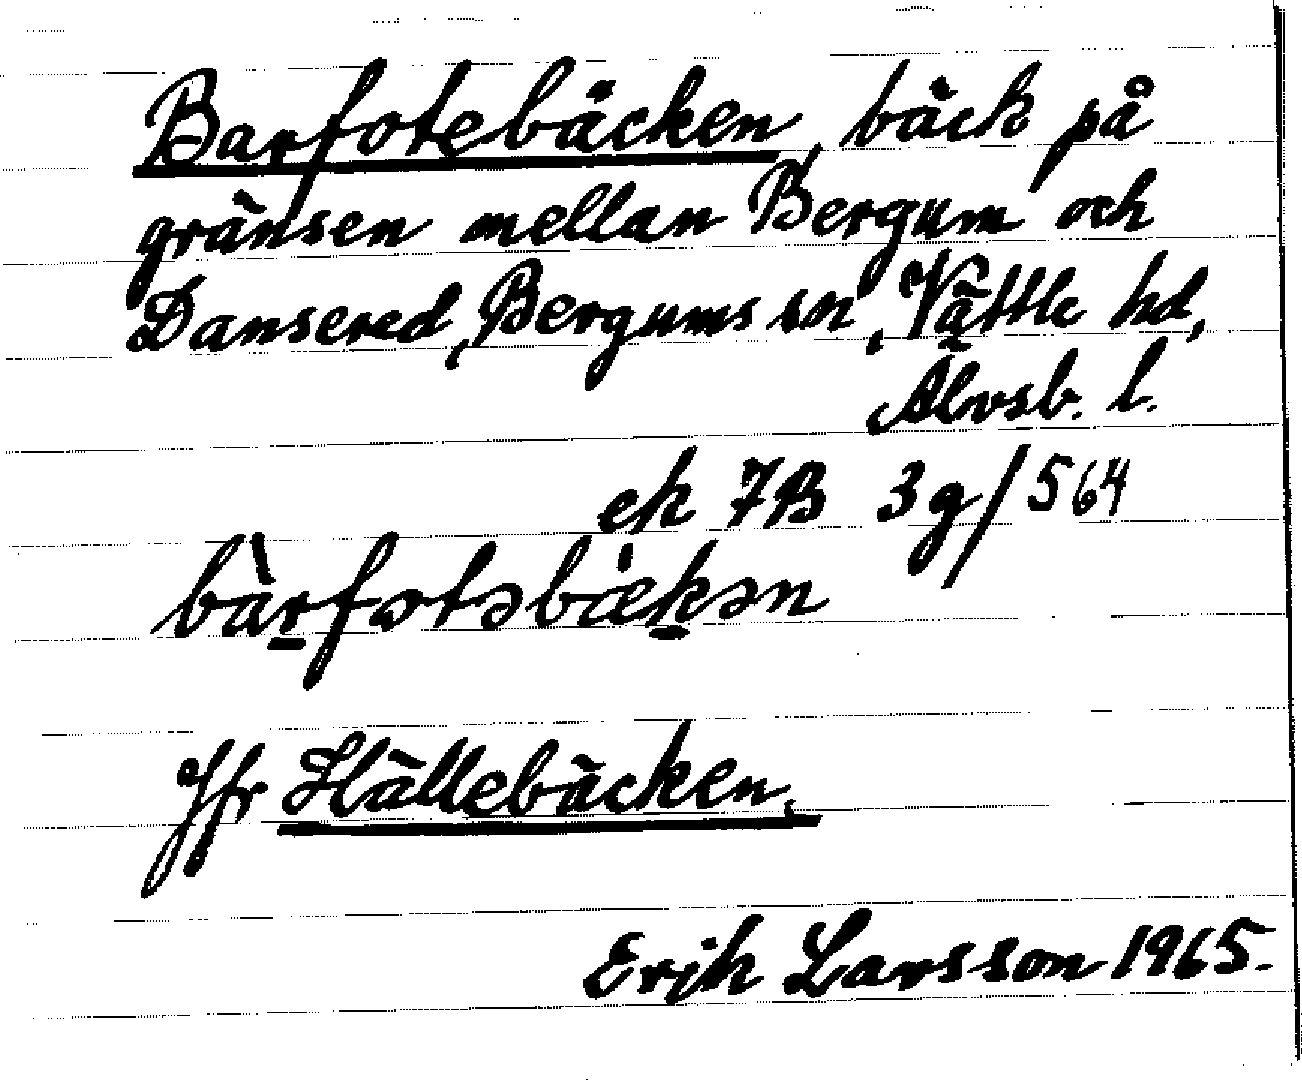 Barfotebäcken, bäck på
gränsen mellan Bergum och
Dansered, Bergums sn, Vättle hd,
Älvsb. l.
ek 7B 3g/564
bàrfotəbækən
Jfr Hällebäcken.
Erik Larsson 1965.